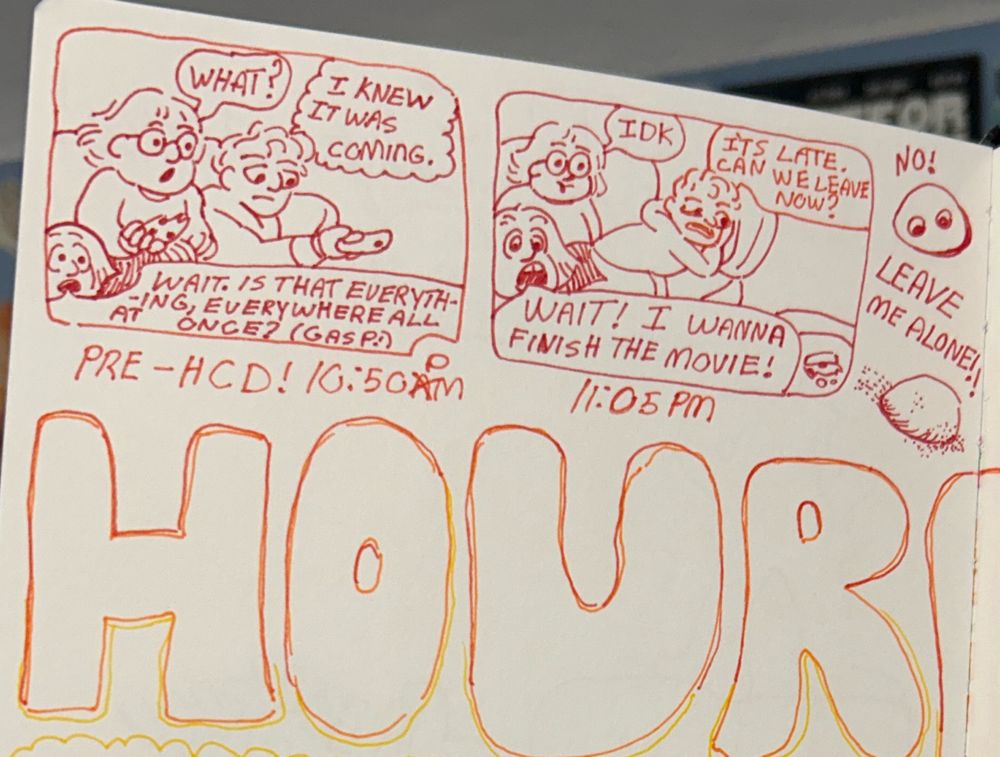 WHAT?
I KNEW
IT WAS
COMING.
WAIT. IS THAT EVERYTH-
-ING, EVERYWHERE ALL
AT ONCE? (GASP!)
PRE-HCD! 10:50PM
IDK
IT'S LATE.
CAN WE LEAVE
NOW?
WAIT! I WANNA
FINISH THE MOVIE!
11:05 PM
NO!
LEAVE
ME ALONE!!
HOUR